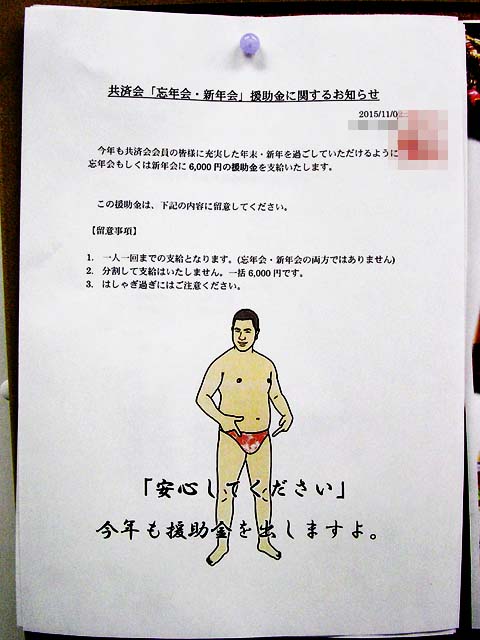 共済会「忘年会・新年会」援助金に関するお知らせ
2015/11/0
今年も共済会会員の皆様に充実した年末・新年を過ごしていただけるように
忘年会もしくは新年会に 6,000 円の援助金を支給いたします。
この援助金は、下記の内容に留意してください。
【留意事項】
1. 一人一回までの支給となります。(忘年会・新年会の両方ではありません)
2. 分割して支給はいたしません。一括 6,000 円です。
3. はしゃぎ過ぎにはご注意ください。
「安心してください」
今年も援助金を出しますよ。